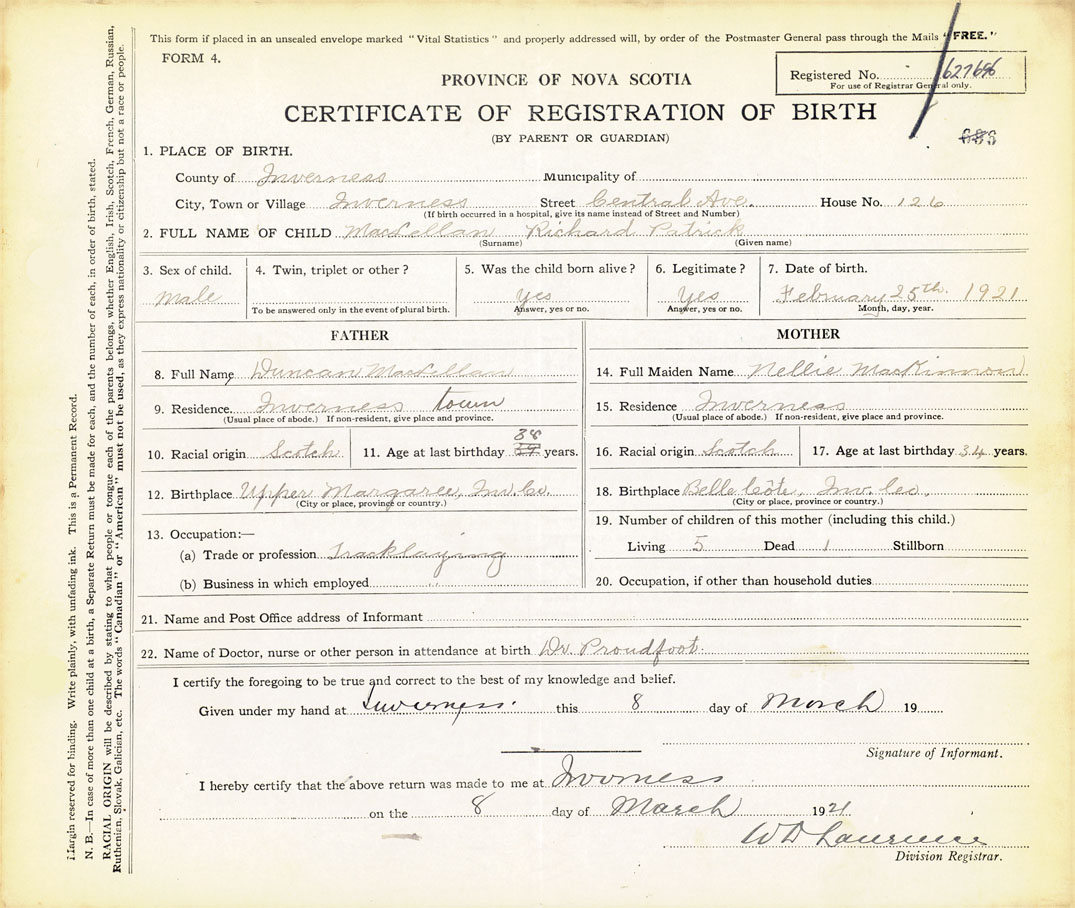 This form if placed in an unsealed envelope marked "Vital Statistics" and properly addressed will, by order of the Postmaster General pass through the Mails "FREE."
FORM 4.
Registered No.
For use of Registrar General only.
PROVINCE OF NOVA SCOTIA
CERTIFICATE OF REGISTRATION OF BIRTH
(BY PARENT OR GUARDIAN)
1. PLACE OF BIRTH.
County of Inverness Municipality of
City, Town or Village Inverness Street Central Ave. House No. 126
(If birth occurred in a hospital, give its name instead of Street and Number)
2. FULL NAME OF CHILD MacLellan Richard Patrick
(Surname) (Given name)
3. Sex of child. 4. Twin, triplet or other? 5. Was the child born alive? 6. Legitimate? 7. Date of birth.
male yes Yes February 25th. 1921
To be answered only in the event of plural birth. Answer, yes or no. Answer, yes or no. Month, day, year.
FATHER
8. Full Name Duncan MacLellan
9. Residence Inverness town
(Usual place of abode.) If non-resident, give place and province.
10. Racial origin Scotch 11. Age at last birthday 38 years.
12. Birthplace Upper Margaree, Inv. Co.
(City or place, province or country.)
13. Occupation:—
(a) Trade or profession Tracklaying
(b) Business in which employed
MOTHER
14. Full Maiden Name Nellie MacKinnon
15. Residence Inverness
(Usual place of abode.) If non-resident, give place and province.
16. Racial origin Scotch 17. Age at last birthday 34 years.
18. Birthplace Belle Côte, Inv. Co.
(City or place, province or country.)
19. Number of children of this mother (including this child.)
Living 5 Dead 1 Stillborn
20. Occupation, if other than household duties
21. Name and Post Office address of Informant
22. Name of Doctor, nurse or other person in attendance at birth Dr. Proudfoot.
I certify the foregoing to be true and correct to the best of my knowledge and belief.
Given under my hand at Inverness. this 8 day of March 19
Signature of Informant.
I hereby certify that the above return was made to me at Inverness
on the 8 day of March 1921
W D Laurence
Division Registrar.
Margin reserved for binding. Write plainly, with unfading ink. This is a Permanent Record.
N. B.—In case of more than one child at a birth, a Separate Return must be made for each, and the number of each, in order of birth, stated.
RACIAL ORIGIN will be described by stating to what people or tongue each of the parents belongs, whether English, Irish, Scotch, French, German, Russian,
Ruthenian, Slovak, Galician, etc. The words "Canadian" or "American" must not be used, as they express nationality or citizenship but not a race or people.